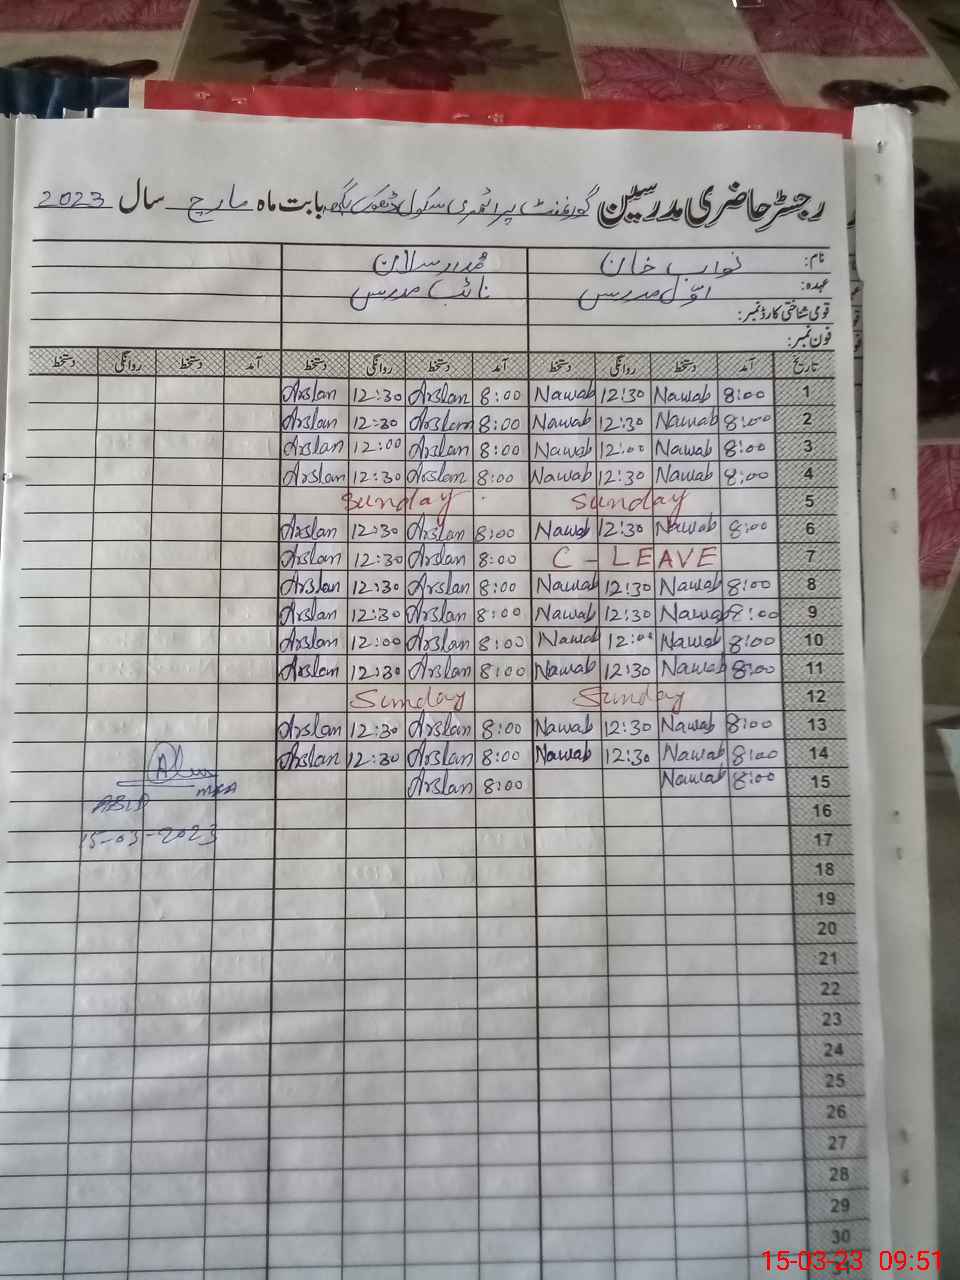 رجسٹر حاضری مدرسین گورنمنٹ پرائمری سکول ڈھوک بابت ماہ مارچ سال 2023
نام: نواب خان محمد ارسلان
عہدہ: اوّل مدرس نائب مدرس
قومی شناختی کارڈ نمبر:
فون نمبر:
تاریخ آمد دستخط روانگی دستخط آمد دستخط روانگی دستخط آمد دستخط روانگی دستخط
1 8:00 Nawab 12:30 Nawab 8:00 Arslan 12:30 Arslan
2 8:00 Nawab 12:30 Nawab 8:00 Arslan 12:30 Arslan
3 8:00 Nawab 12:00 Nawab 8:00 Arslan 12:00 Arslan
4 8:00 Nawab 12:30 Nawab 8:00 Arslan 12:30 Arslan
5 Sunday Sunday
6 8:00 Nawab 12:30 Nawab 8:00 Arslan 12:30 Arslan
7 C - LEAVE 8:00 Arslan 12:30 Arslan
8 8:00 Nawab 12:30 Nawab 8:00 Arslan 12:30 Arslan
9 8:00 Nawab 12:30 Nawab 8:00 Arslan 12:30 Arslan
10 8:00 Nawab 12:00 Nawab 8:00 Arslan 12:00 Arslan
11 8:00 Nawab 12:30 Nawab 8:00 Arslan 12:30 Arslan
12 Sunday Sunday
13 8:00 Nawab 12:30 Nawab 8:00 Arslan 12:30 Arslan
14 8:00 Nawab 12:30 Nawab 8:00 Arslan 12:30 Arslan
15 8:00 Nawab 8:00 Arslan
MEA
15-03-2023
16
17
18
19
20
21
22
23
24
25
26
27
28
29
30
15-03-23 09:51